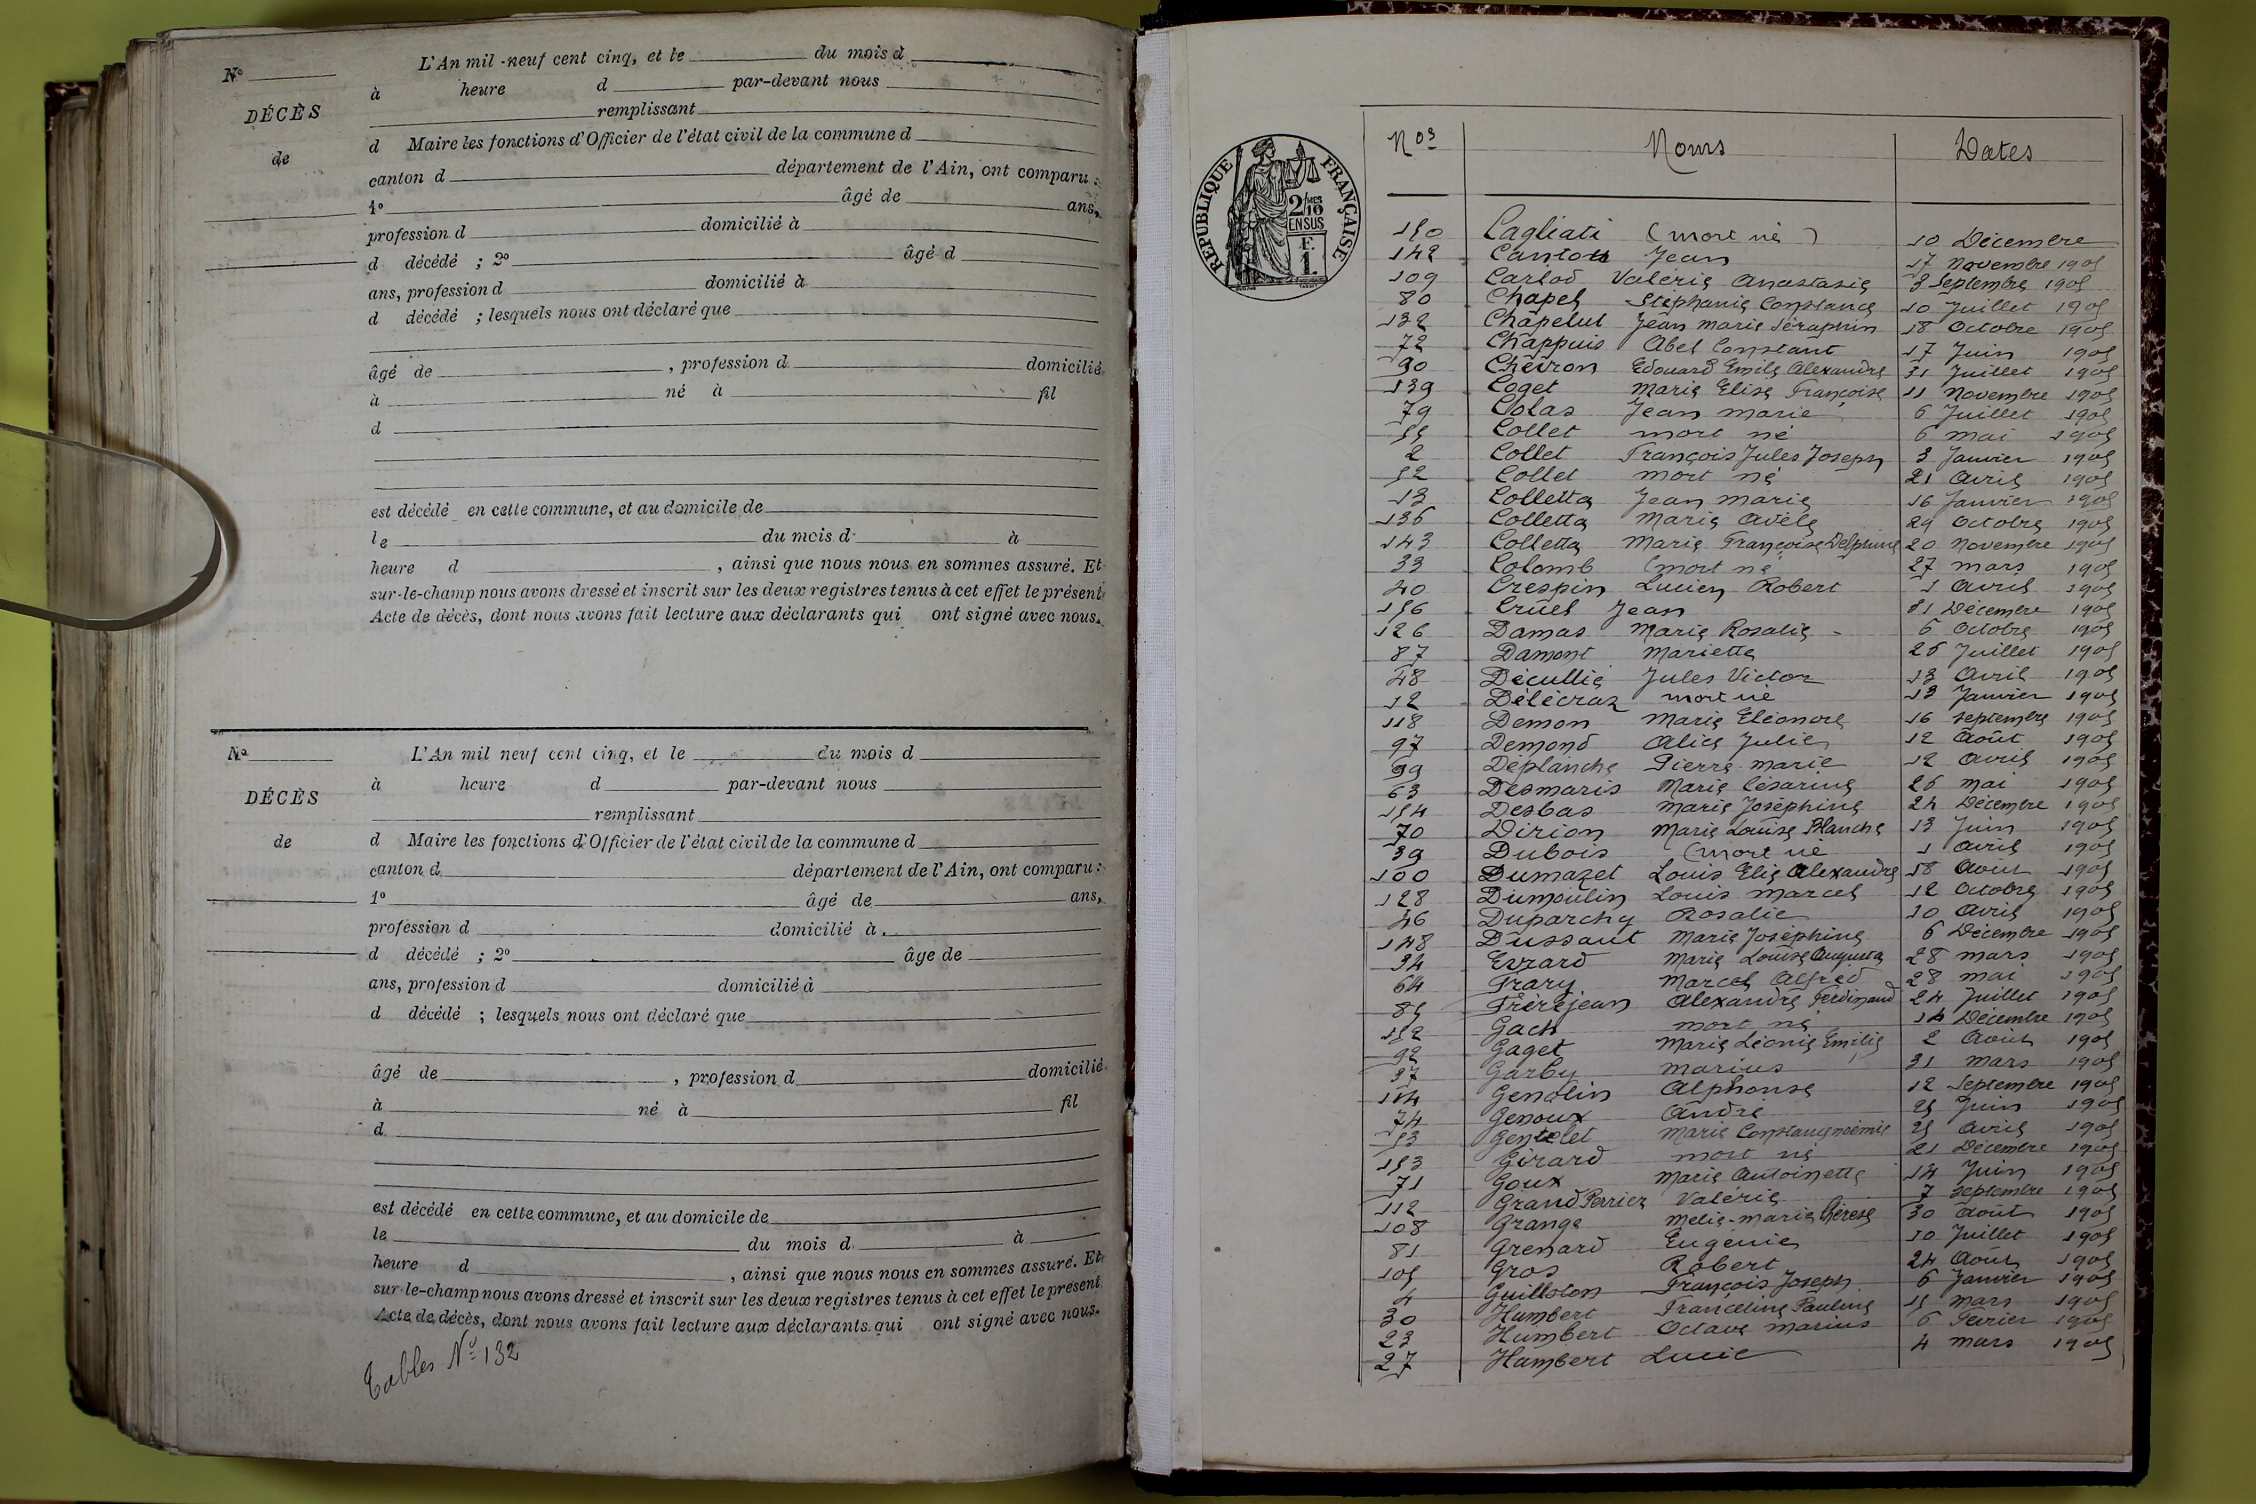 No
L'An mil neuf cent cinq, et le du mois d
à heure d par-devant nous
DÉCÈS
remplissant
d Maire les fonctions d'Officier de l'état civil de la commune d
de
canton d département de l'Ain, ont comparu :
1o âgé de ans,
profession d domicilié à
d décédé ; 2o âgé d
ans, profession d domicilié à
d décédé ; lesquels nous ont déclaré que
âgé de , profession d domicilié
à né à fil
d
est décédé en cette commune, et au domicile de
le du mois d à
heure d , ainsi que nous nous en sommes assuré. Et
sur-le-champ nous avons dressé et inscrit sur les deux registres tenus à cet effet le présent
Acte de décès, dont nous avons fait lecture aux déclarants qui ont signé avec nous.
No
L'An mil neuf cent cinq, et le du mois d
à heure d par-devant nous
DÉCÈS
remplissant
de
d Maire les fonctions d'Officier de l'état civil de la commune d
canton d département de l'Ain, ont comparu :
1o âgé de ans,
profession d domicilié à
d décédé ; 2o âge de
ans, profession d domicilié à
d décédé ; lesquels nous ont déclaré que
âgé de , profession d domicilié
à né à fil
d
est décédé en cette commune, et au domicile de
le du mois d à
heure d , ainsi que nous nous en sommes assuré. Et
sur-le-champ nous avons dressé et inscrit sur les deux registres tenus à cet effet le présent
Acte de décès, dont nous avons fait lecture aux déclarants qui ont signé avec nous.
Tables No 132
RÉPUBLIQUE FRANÇAISE
2/10 MES
EN SUS
F.
1.
Nos Noms Dates
150 Cagliati (mort né) 10 Décembre
142 Jean 17 Novembre 1905
109 Carlod Valérie Anastasie 3 Septembre 1905
80 Chapel Stéphanie Constance 10 Juillet 1905
132 Chapelut Jean Marie Séraphin 18 Octobre 1905
72 Chappuis Abel Constant 17 Juin 1905
90 Cheiron Edouard Emile Alexandre 31 Juillet 1905
139 Coget Marie Elise Françoise 11 Novembre 1905
79 Colas Jean Marie 6 Juillet 1905
55 Collet mort né 6 Mai 1905
2 Collet François Jules Joseph 3 Janvier 1905
52 Collet mort né 21 Avril 1905
13 Colletta Jean Marie 16 Janvier 1905
136 Colletta Marie Adèle 29 Octobre 1905
143 Colletta Marie Françoise Delphine 20 Novembre 1905
33 Colomb (mort né 27 Mars 1905
40 Crespin Lucien Robert 1 Avril 1905
156 Cruel Jean 31 Décembre 1905
126 Damas Marie Rosalie 6 Octobre 1905
87 Damont Mariette 26 Juillet 1905
48 Décullié Jules Victor 13 Avril 1905
12 Délécraz mort né 13 Janvier 1905
118 Demon Marie Eléonore 16 Septembre 1905
97 Demond Alice Julie 12 Août 1905
Déplanche Pierre Marie 12 Avril 1905
63 Desmaris Marie Césarine 26 Mai 1905
154 Desbas Marie Joséphine 24 Décembre 1905
70 Dirion Marie Louise Blanche 13 Juin 1905
39 Dubois (mort né 1 Avril 1905
100 Dumazet Louis Elie Alexandre 18 Août 1905
128 Dumoulin Louis Marcel 12 Octobre 1905
46 Duparchy Rosalie 10 Avril 1905
148 Dussaut Marie Joséphine 6 Décembre 1905
34 Evrard Marie Louise Augusta 28 Mars 1905
64 Frary Marcel Alfred 28 Mai 1905
85 Fréréjean Alexandre Ferdinand 24 Juillet 1905
152 Gach mort né 14 Décembre 1905
92 Gaget Marie Léonie Emilie 2 Août 1905
37 Garby Marius 31 Mars 1905
114 Gendlin Alphonse 12 Septembre 1905
74 Genoux André 25 Juin 1905
53 Gentelet Marie 25 Avril 1905
153 Girard mort né 21 Décembre 1905
71 Goux Marie Antoinette 14 Juin 1905
112 Grand Perrier Valérie 7 Septembre 1905
108 Grange Mélie-Marie Thérèse 30 Août 1905
81 Grenard Eugénie 10 Juillet 1905
105 Gros Robert 24 Août 1905
4 Guilloton François Joseph 6 Janvier 1905
30 Humbert Franceline Pauline 15 Mars 1905
23 Humbert Octave Marius 6 Février 1905
27 Humbert Lucie 4 Mars 1905